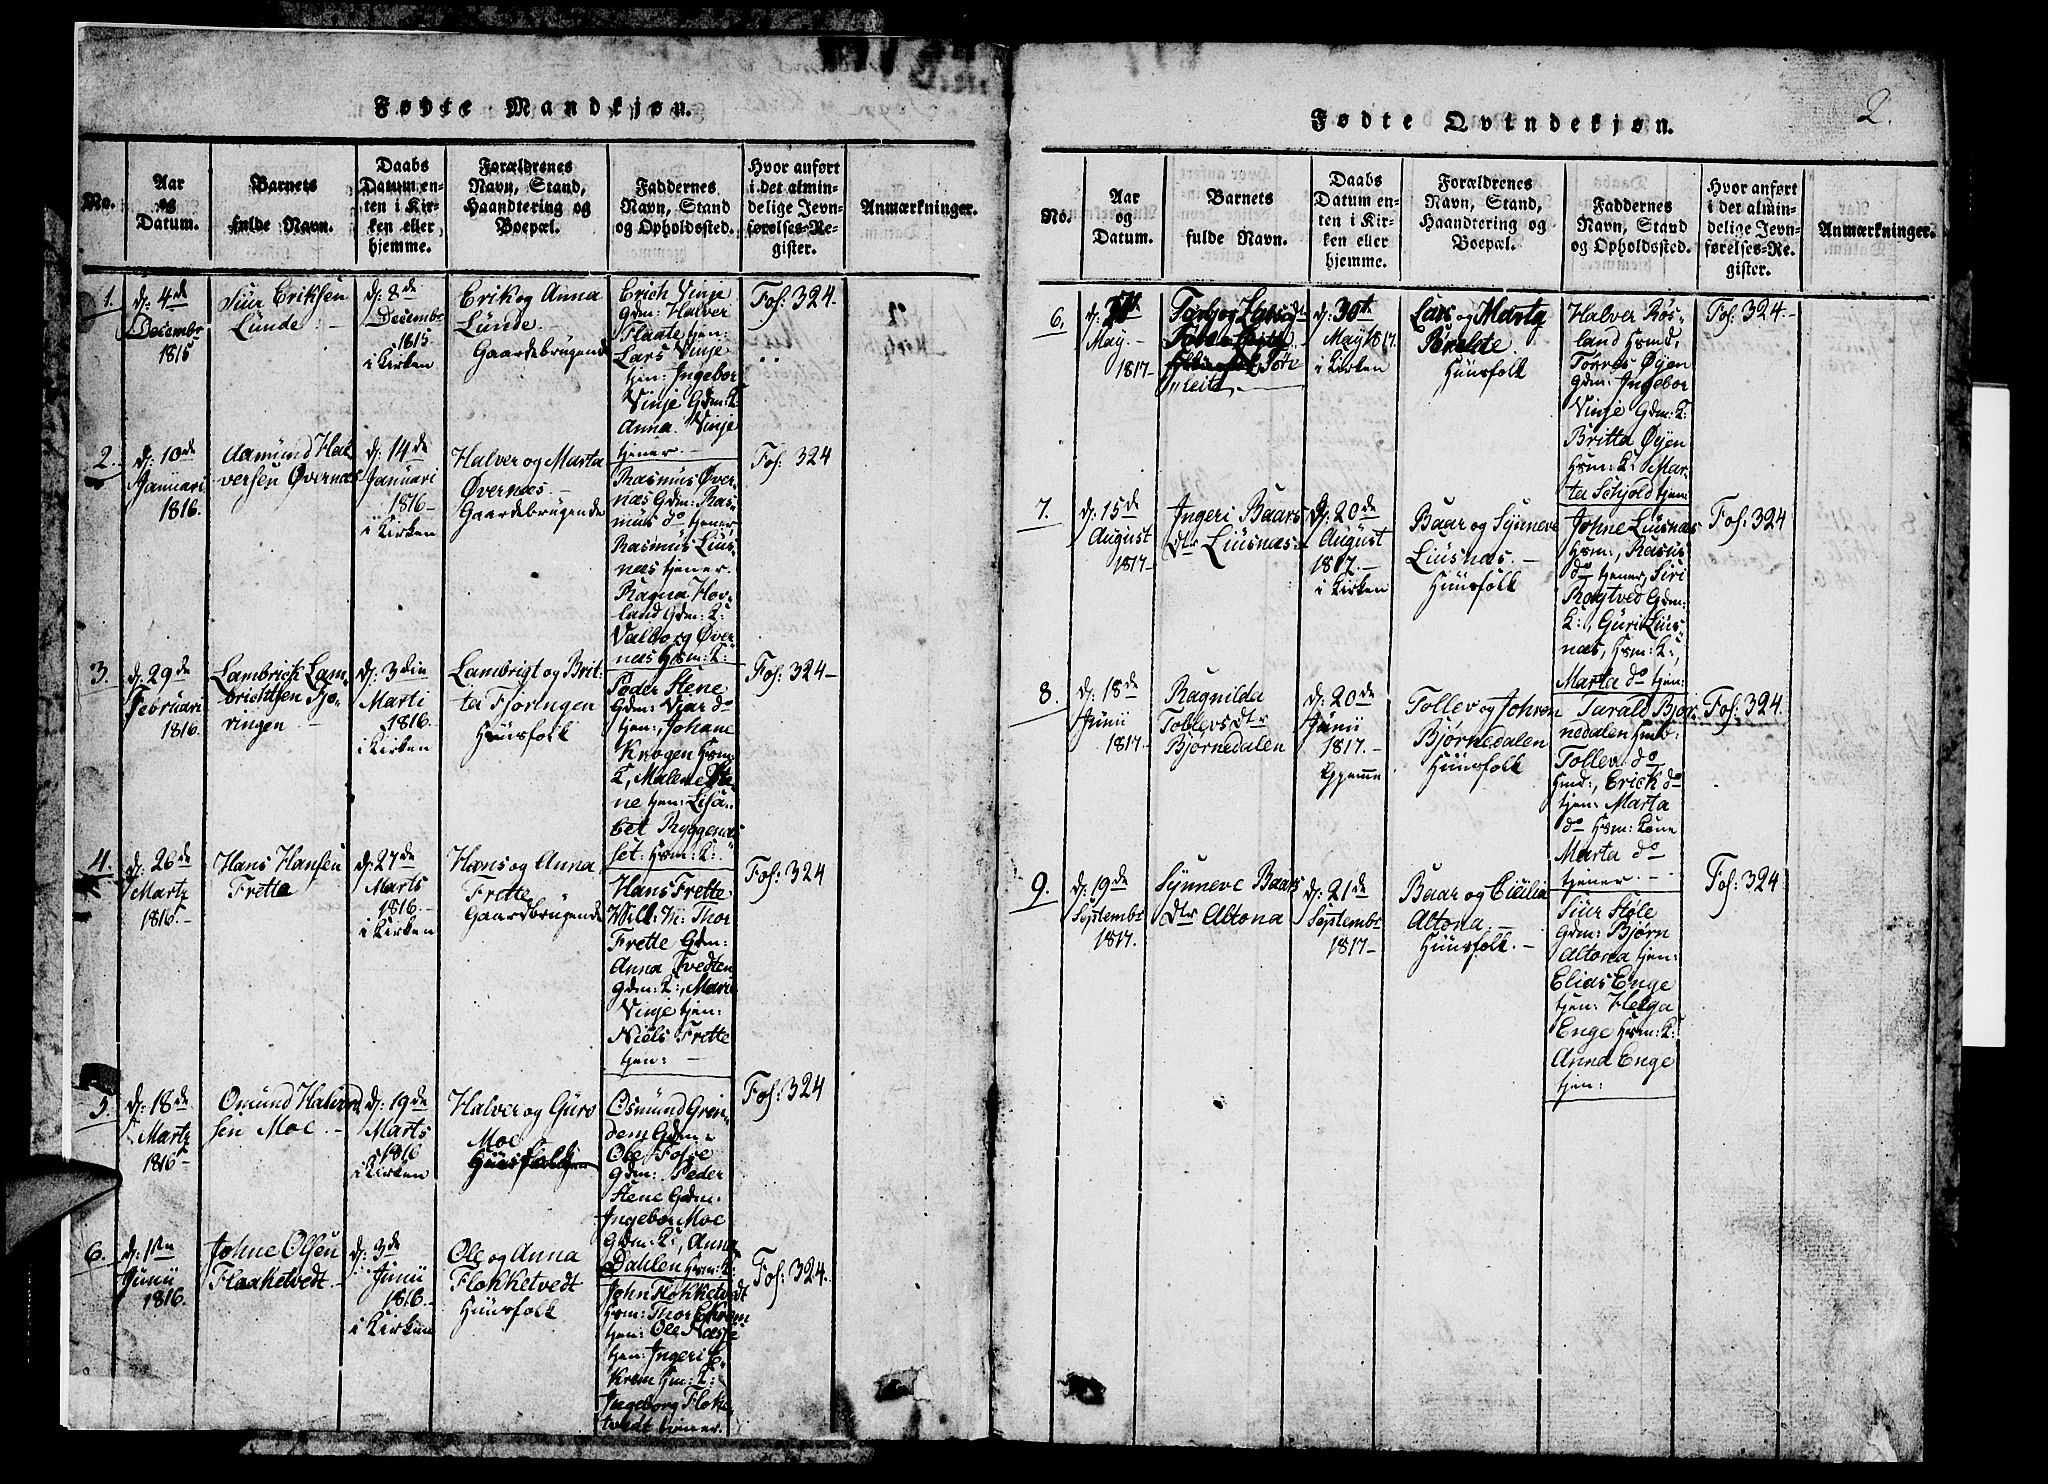 Fødte Mandkjøn.
No.
Aar
og
Datum.
Barnets
fulde Navn.
Daabs
Datum en-
ten i Kir-
ken eller
hjemme.
Forældrenes
Navn, Stand,
Haandtering og
Boepæl.
Faddernes
Navn, Stand
og Opholdssted.
Hvor anført
i det almin-
delige Jevn-
førelses-Re-
gister.
Anmærkninger.
1.
d: 4de
Decembr
1815
Siur Eriksen
Lunde. -
d: 8de
Decembr
1815.
i Kirken
Erik og Anna
Lunde.
Gaardebrugende
Erich Vinje
Gdm: Halver
Flaate tjen:
Lars Vinje
tjen: Ingebor
Vinje Gdm: K:
Anna Vinje
tjener. -
Fol: 324.
2.
d: 10de
Januari
1816.
Aamund Hal-
versen Øvernæs
d: 14de
Januari
1816 -
i Kirken
Halver og Marta
Øvernæs. -
Gaardebrugende
Rasmus Øver-
næs Gdm: Ras-
mus do tjener
Rasmus Lius-
næs tjener.
Ragna Hov-
land Gdm: K:
Valborg Øver-
næs Hsm: K:
Fol: 324
3.
d: 29de
Februari
1816.
Lambrick Lam-
brichtsen Fjø-
ringen -
d: 3die
Marti
1816. -
i Kirken
Lambrigt og Brit-
ta Fjøringen
Huusfolk
Peder Stene
Gdm: Ivar do
tjen:, Johane
Krogen Hsm:
K, Malene Ste-
ne tjen: Lisa-
bet Byggenæs-
set: Hsm: K:
Fol: 324 -
4.
d: 26de
Marty
1816. -
Hans Hansen
Frette
d: 27de
Marts
1816. -
i Kirken
Hans og Anna
Frette
Gaardbrugende
Hans Frette
Thor
Frette Gdm:
Anna Tvedten
Gdm: K:, Marie
Vinje tjen:
Niels Frette
tjen: -
Fol: 324
5.
d: 18de
Marty
1816 -
Omund Halvor-
sen Moe. -
d: 19de
Marts
1816
i Kirken
Halver og Guro
Moe
Huusfolk
Osmund Grin-
dem Gdm:
Ole Fosse
Gdm: Peder
Stene Gdm:
Ingebor Moe
Gdm: K:, Anna
Dahlen Hsm: K:
Fol: 324
6.
d: 1ten
Junii
1816.
Johne Olsen
Flaaketvedt. -
d: 3de
Junii
1816. -
i Kirken
Ole og Anna
Flokketvedt
Huusfolk
John Flokketvedt
Hsm: Thor Ekrem
tjen: Ole Næsse
tjen: Ingeri E-
krem Hm: K:
Ingeborg Flokke-
tvedt tjener.
Fol: 324.
Fødte Qvindekjøn.
2.
No.
Aar
og
Datum.
Barnets
fulde Navn.
Daabs
Datum en-
ten i Kir-
ken eller
hjemme.
Forældrenes
Navn, Stand,
Haandtering og
Boepæl.
Faddernes
Navn, Stand
og Opholdssted.
Hvor anført
i det almin-
delige Jevn-
førelses-Re-
gister.
Anmærkninger.
6.
May. -
1817 -
d: 30te
May 1817.
i Kirken
Lars og Marta
Huusfolk
Halver Røs-
land Hsmd,
Torres Øyen
Gdm: Ingebor
Vinje Gdm: K:
Britta Øyen
Hsm: K: Mar-
ta Schjold tjen:
Fol: 324 -
7.
d: 15de
August
1817 -
Ingeri Baars-
dtr Liusnæs. -
d: 20de
August
1817. -
i Kirken
Baar og Synneve
Liusnæs. -
Huusfolk
Johne Liusnæs
Hsm:, Rasus
do tjener, Siri
Rogtved Gdm:
K:, Guri Lius-
næs, Hsm: K:,
Marta do tjen:
Fol: 324
8.
d: 18de
Junii
1817. -
Ragnilda
Tollevsdtr
Bjørnedalen
d: 20de
Junii
1817. -
Hjemme
Tollev og Johren
Bjørnedalen
Huusfolk
Tarald Bjør-
nedalen Hsmd:
Tollev do
Hmd:, Erick do
tjen: Marta
do Hsm: Kone
Marta do
tjener. -
Fol: 324.
9.
d: 19de
Septembr
1817.
Synneve Baars
dtr Altona
d: 21de
Septembr
1817 -
Baar og Cicilia
Altona. -
Huusfolk. -
Siur Støle
Gdm: Bjørn
Altona tjen:
Elias Enge
tjen: Helga
Enge Hsm: K:
Anna Enge
tjen:
Fol: 324